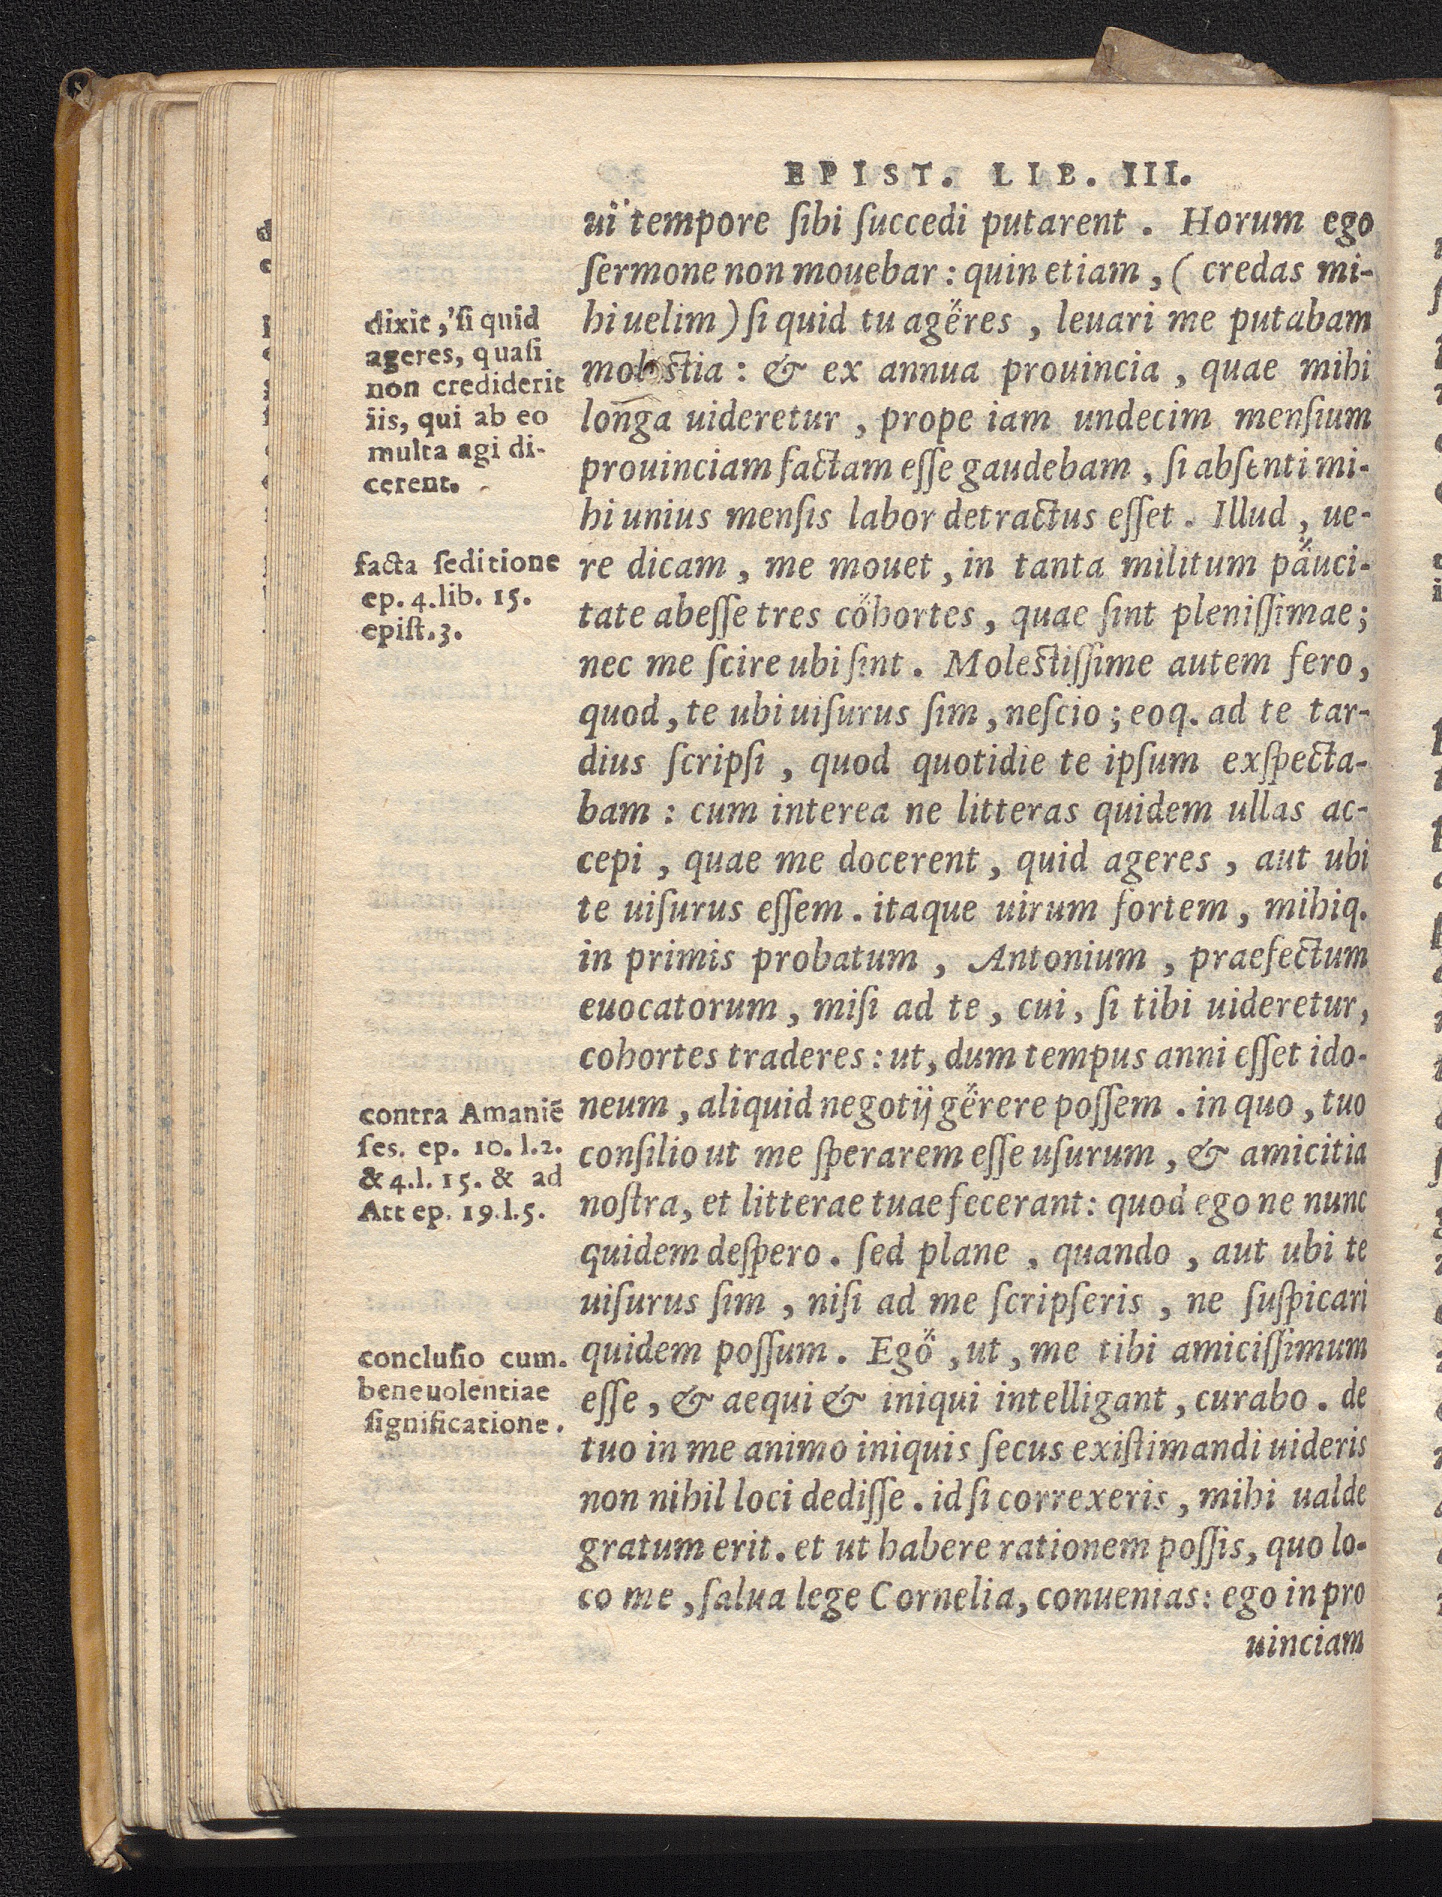 EPIST. LIB. III.
ui tempore ſibi ſuccedi putarent. Horum ego
ſermone non mouebar: quin etiam, (credas mi-
hi uelim) ſi quid tu ageres, leuari me putabam
moleſtia: & ex annua prouincia, quae mihi
longa uideretur, prope iam undecim menſium
prouinciam factam eſſe gaudebam, ſi abſenti mi-
hi unius menſis labor detractus eſſet. Illud, ue-
re dicam, me mouet, in tanta militum pauci-
tate abeſſe tres cohortes, quae ſint pleniſſimae;
nec me ſcire ubi ſint. Moleſtiſſime autem fero,
quod, te ubi uiſurus ſim, neſcio; eoq. ad te tar-
dius ſcripſi, quod quotidie te ipſum exſpecta-
bam: cum interea ne litteras quidem ullas ac-
cepi, quae me docerent, quid ageres, aut ubi
te uiſurus eſſem. itaque uirum fortem, mihiq.
in primis probatum, Antonium, praefectum
euocatorum, miſi ad te, cui, ſi tibi uideretur,
cohortes traderes: ut, dum tempus anni eſſet ido-
neum, aliquid negotij gerere poſſem. in quo, tuo
conſilio ut me ſperarem eſſe uſurum, & amicitia
noſtra, et litterae tuae fecerant: quod ego ne nunc
quidem deſpero. ſed plane, quando, aut ubi te
uiſurus ſim, niſi ad me ſcripſeris, ne ſuſpicari
quidem poſſum. Ego, ut, me tibi amiciſſimum
eſſe, & aequi & iniqui intelligant, curabo. de
tuo in me animo iniquis ſecus exiſtimandi uideris
non nihil loci dediſſe. id ſi correxeris, mihi ualde
gratum erit. et ut habere rationem poſſis, quo lo-
co me, ſalua lege Cornelia, conuenias: ego in pro
uinciam
dixit, ſi quid
ageres, quaſi
non crediderit
iis, qui ab eo
multa agi di-
cerent.
facta ſeditione
ep. 4. lib. 15.
epiſt. 3.
contra Amaniē
ſes. ep. 10. l. 2.
& 4. l. 15. & ad
Att ep. 19. l. 5.
concluſio cum.
beneuolentiae
ſignificatione.